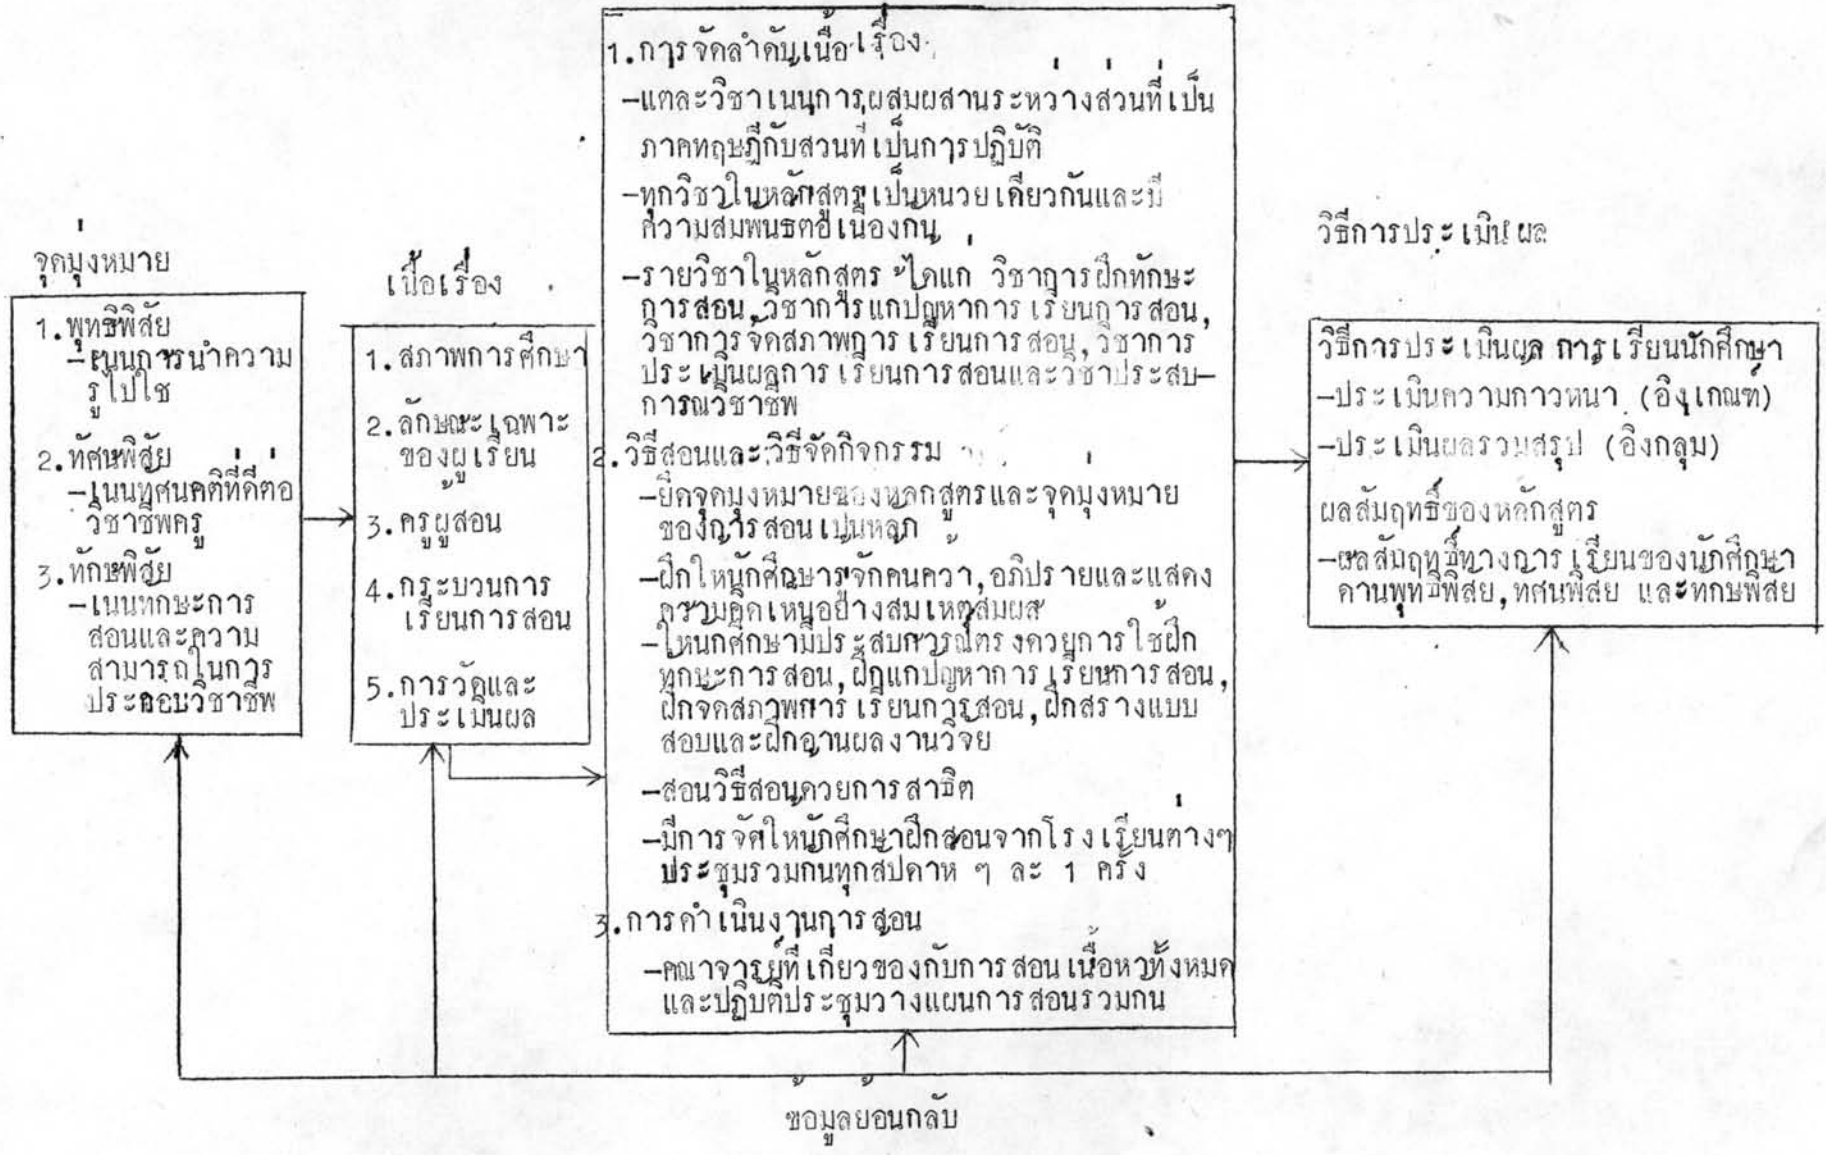 จุดมุ่งหมาย
1.พุทธิพิสัย
-เน้นการนำความ
รู้ไปใช้
2.ทัศนพิสัย
-เน้นทัศนคติที่ดีต่อ
วิชาชีพครู
3.ทักษพิสัย
-เน้นทักษะการ
สอนและความ
สามารถในการ
ประกอบวิชาชีพ
เนื้อเรื่อง
1.สภาพการศึกษา
2.ลักษณะเฉพาะ
ของผู้เรียน
3.ครูผู้สอน
4.กระบวนการ
เรียนการสอน
5.การวัดและ
ประเมินผล
1.การจัดลำดับเนื้อเรื่อง
-แต่ละวิชาเน้นการผสมผสานระหว่างส่วนที่เป็น
ภาคทฤษฎีกับส่วนที่เป็นการปฏิบัติ
-ทุกวิชาในหลักสูตรเป็นหน่วยเดียวกันและมี
ความสัมพันธ์ต่อเนื่องกัน
-รายวิชาในหลักสูตร ได้แก่ วิชาการฝึกทักษะ
การสอน,วิชาการแก้ปัญหาการเรียนการสอน,
วิชาการจัดสภาพการเรียนการสอน,วิชาการ
ประเมินผลการเรียนการสอนและวิชาประสบ-
การณ์วิชาชีพ
2.วิธีสอนและวิธีจัดกิจกรรม
-ยึดจุดมุ่งหมายของหลักสูตรและจุดมุ่งหมาย
ของการสอนเป็นหลัก
-ฝึกให้นักศึกษารู้จักค้นคว้า,อภิปรายและแสดง
ความคิดเห็นอย่างสมเหตุสมผล
-ให้นักศึกษามีประสบการณ์ตรงด้วยการใช้ฝึก
ทักษะการสอน,ฝึกแก้ปัญหาการเรียนการสอน,
ฝึกจัดสภาพการเรียนการสอน,ฝึกสร้างแบบ
สอบและฝึกอ่านผลงานวิจัย
-สอนวิธีสอนด้วยการสาธิต
-มีการจัดให้นักศึกษาฝึกสอนจากโรงเรียนต่างๆ
ประชุมร่วมกันทุกสัปดาห์ ๆ ละ 1 ครั้ง
3.การดำเนินงานการสอน
-คณาจารย์ที่เกี่ยวข้องกับการสอนเนื้อหาทั้งหมด
และปฏิบัติประชุมวางแผนการสอนร่วมกัน
วิธีการประเมินผล
วิธีการประเมินผล การเรียนนักศึกษา
-ประเมินความก้าวหน้า (อิงเกณฑ์)
-ประเมินผลรวมสรุป (อิงกลุ่ม)
ผลสัมฤทธิ์ของหลักสูตร
-ผลสัมฤทธิ์ทางการเรียนของนักศึกษา
ด้านพุทธิพิสัย,ทัศนพิสัย และทักษพิสัย
ข้อมูลย้อนกลับ